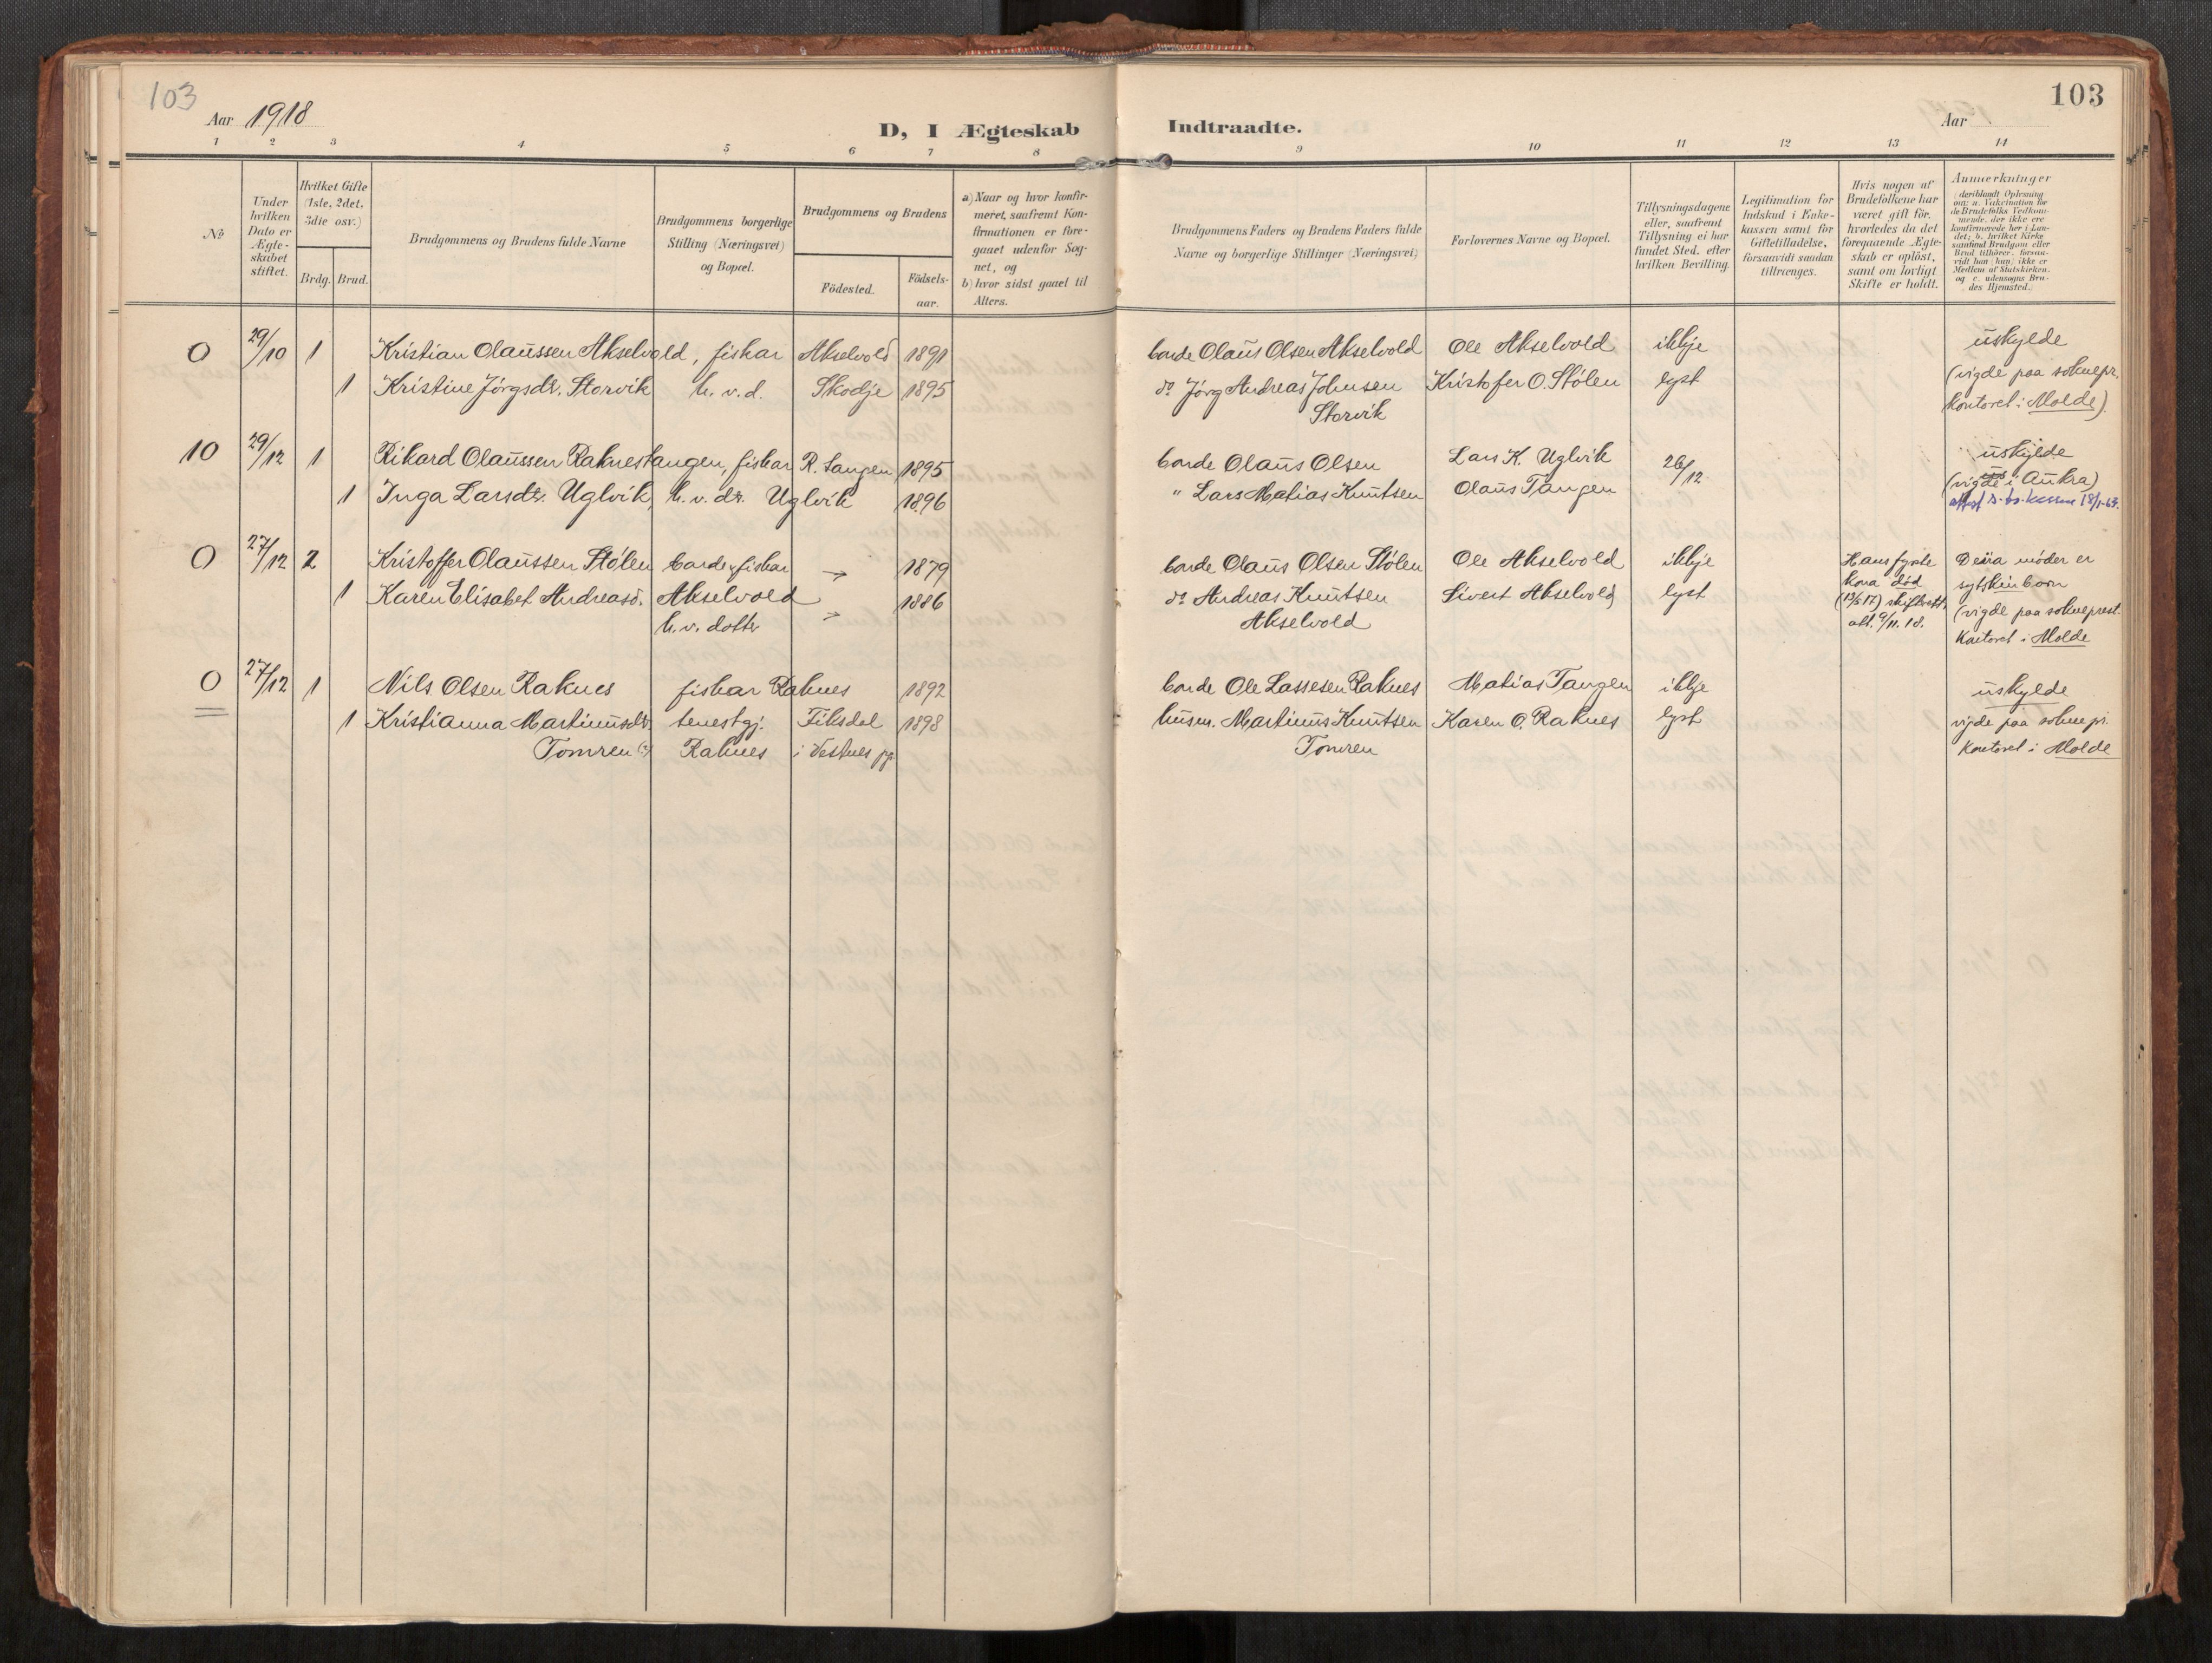 103
Aar 1918
D, I Ægteskab
Indtraadte.
103
Aar
1 2 3 4 5 6 7 8
9 10 11 12 13 14
№
Under hvilken Dato er Ægteskabet stiftet.
Hvilket Gifte (1ste, 2det, 3die osv.)
Brdg. Brud.
Brudgommens og Brudens fulde Navne
Brudgommens borgerlige Stilling (Næringsvei) og Bopæl.
Brudgommens og Brudens
Födested.
Födselsaar.
a) Naar og hvor konfirmeret, saafremt Konfirmationen er foregaaet udenfor Sognet, og
b) hvor sidst gaaet til Alters.
Brudgommens Faders og Brudens Faders fulde Navne og borgerlige Stillinger (Næringsvei)
Forlovernes Navne og Bopæl.
Tillysningsdagene eller, saafremt Tillysning ei har fundet Sted, efter hvilken Bevilling.
Legitimation for Indskud i Enkekassen samt for Giftetilladelse, forsaavidt saadan tiltrænges.
Hvis nogen af Brudefolkene har været gift för, hvorledes da det foregaaende Ægteskab er oplöst, samt om lovligt Skifte er holdt.
Anmerkninger (deriblandt Oplysning om: a. Vakcination for de Brudefolks Vedkommende, der ikke ere konfirmerede her i Landet; b. hvilket Kirkesamfund Brudgom eller Brud tilhörer, forsaavidt han (hun) ikke er Medlem af Statskirken, og c. udensogns Brudes Hjemsted.)
0 29/10 1 Kristian Olaussen Akselvold, fiskar Akselvold 1891 bonde Olaus Olsen Akselvold Ole Akselvold ikkje uskylde
1 Kristine Jörgsdr. Storvik h. v. d. Skodje 1895 do Jörg Andreas Johnsen Kristofer O. Stölen lyst (vigde paa soknepr.
Storvik kontoret i Molde).
10 29/12 1 Rikard Olaussen Raknestangen, fiskar R. tangen 1895 bonde Olaus Olsen Lars K. Uglvik 26/12 uskylde
1 Inga Larsdr. Uglvik, h. v. dr. Uglvik 1896 " Lars Matias Knutsen Olaus Tangen (vigde i Aukra)
18/1-63.
0 27/12 2 Kristoffer Olaussen Stölen bonde, fiskar " 1879 bonde Olaus Olsen Stölen Ole Akselvold ikkje Hans fyrste Deira möder er
1 Karen Elisabet Andreasd. Akselvold " 1886 do Andreas Knutsen Sivert Akselvold lyst kona död syskinborn
h. v. dotter Akselvold (13/5 17) skifterett. (vigde paa soknepr.
att. 9/11. 18. kontoret i Molde
0 27/12 1 Nils Olsen Raknes fiskar Raknes 1892 bonde Ole Lassesen Raknes Matias Tangen ikkje uskylde
1 Kristianna Martinusdr. tenestgj. Fiksdal 1898 husm. Martinus Knutsen Karen O. Raknes lyst vigde paa soknepr.
Tomren (?) Raknes i Vestnes pgj. Tomren kontoret i Molde